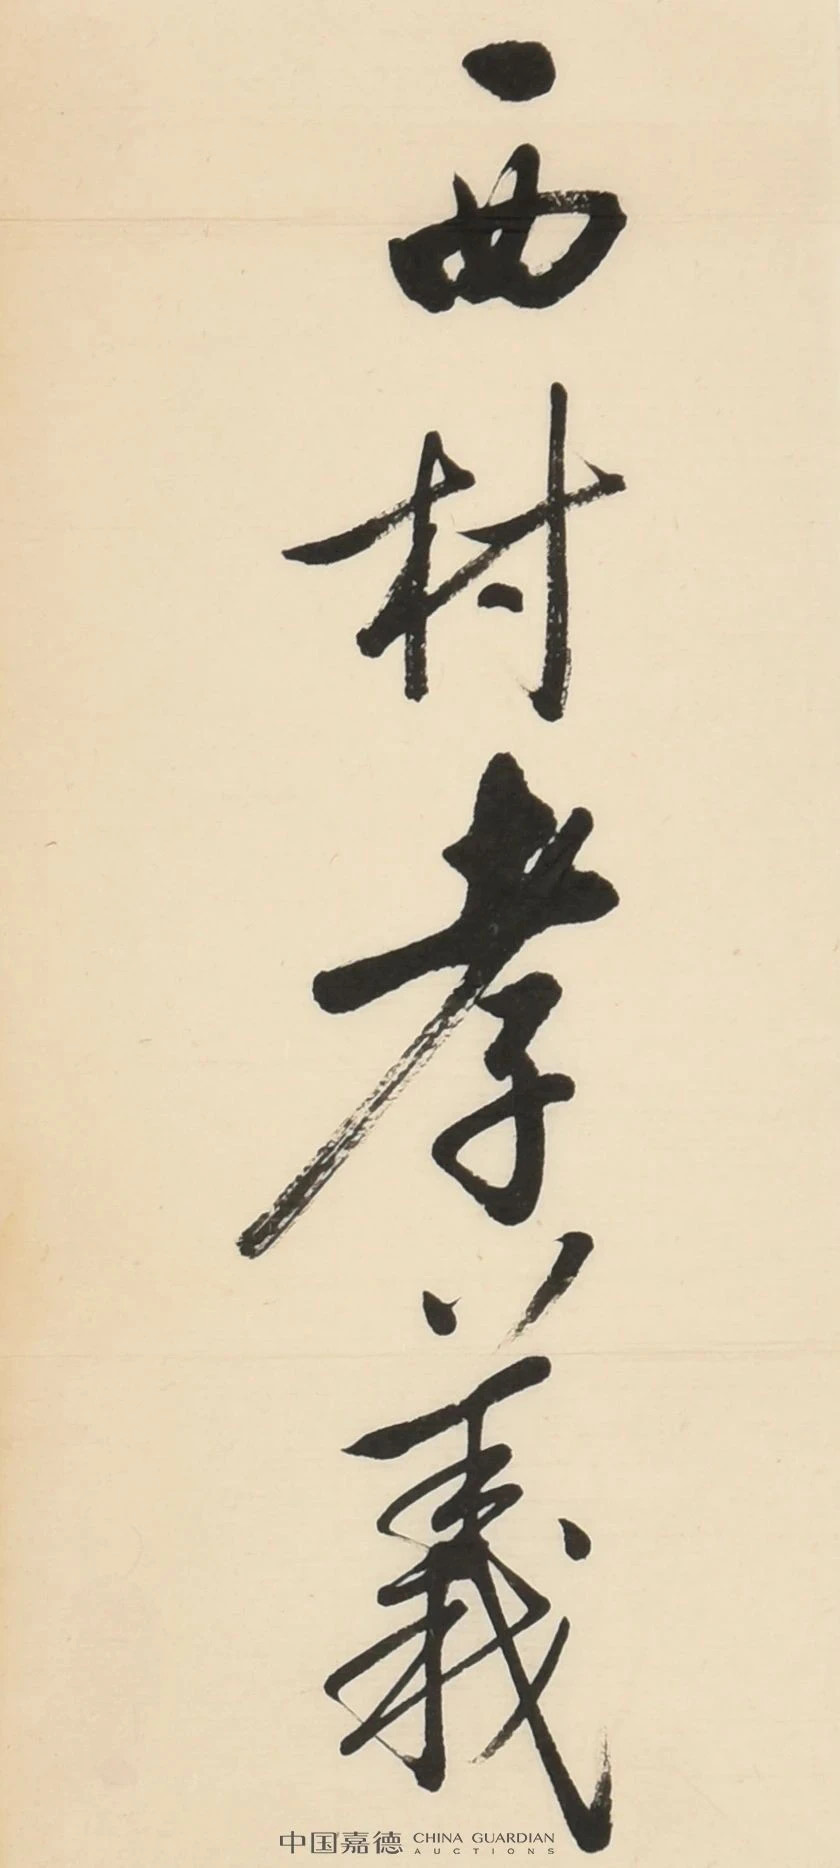 西村孝義
中国嘉德 CHINA GUARDIAN
AUCTIONS